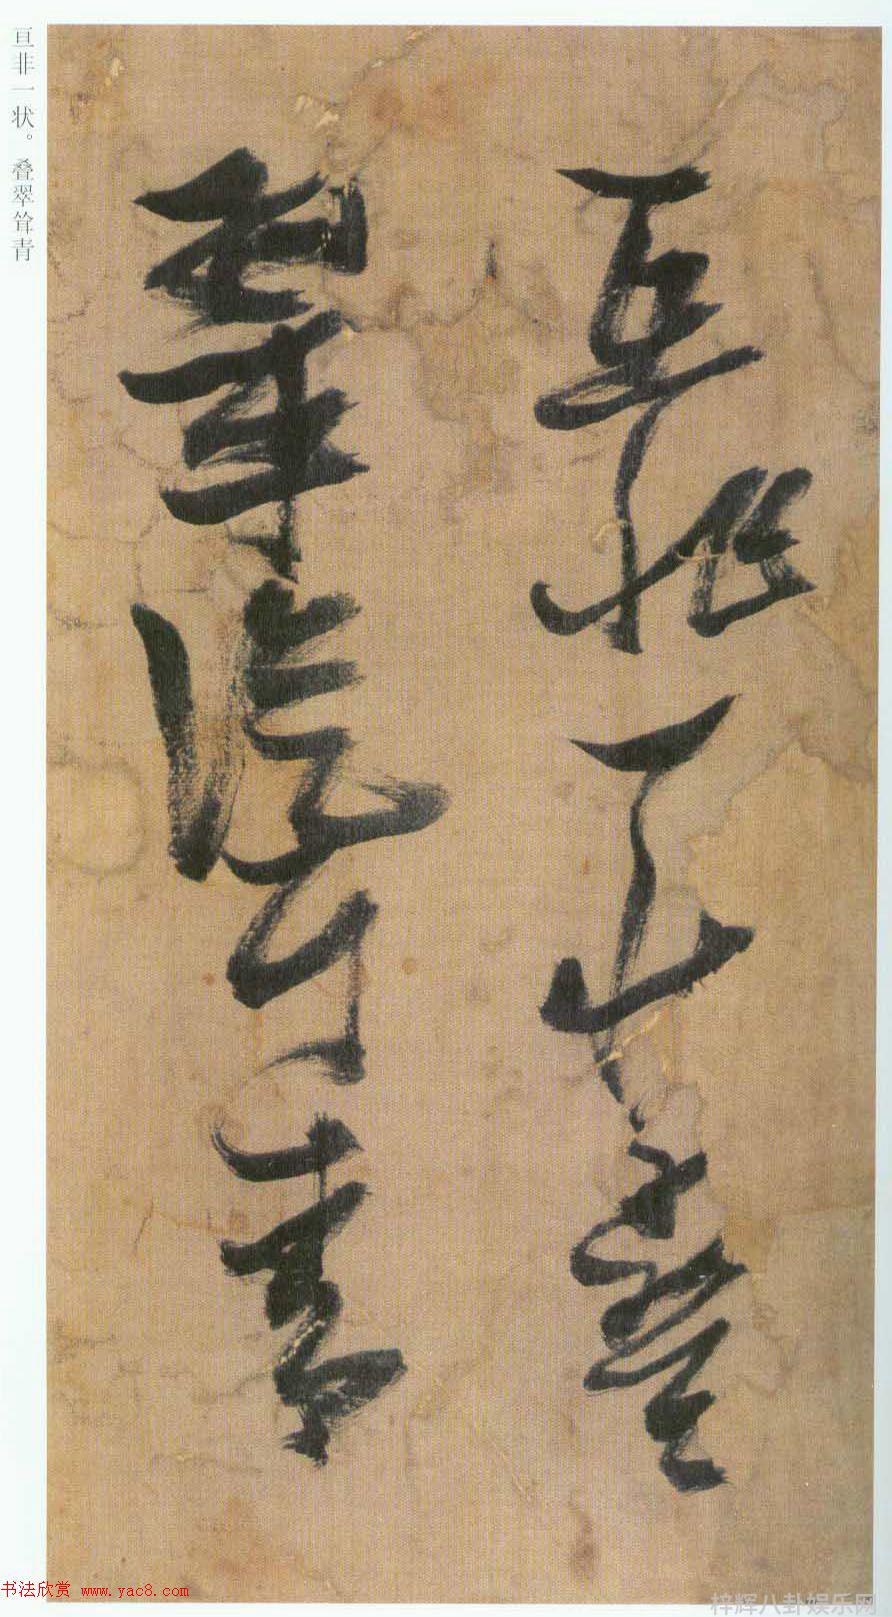 亘非一狀疊
翠聳青
亘非一状。叠翠耸青
书法欣赏 www.yac8.com
梓辉八卦娱乐网